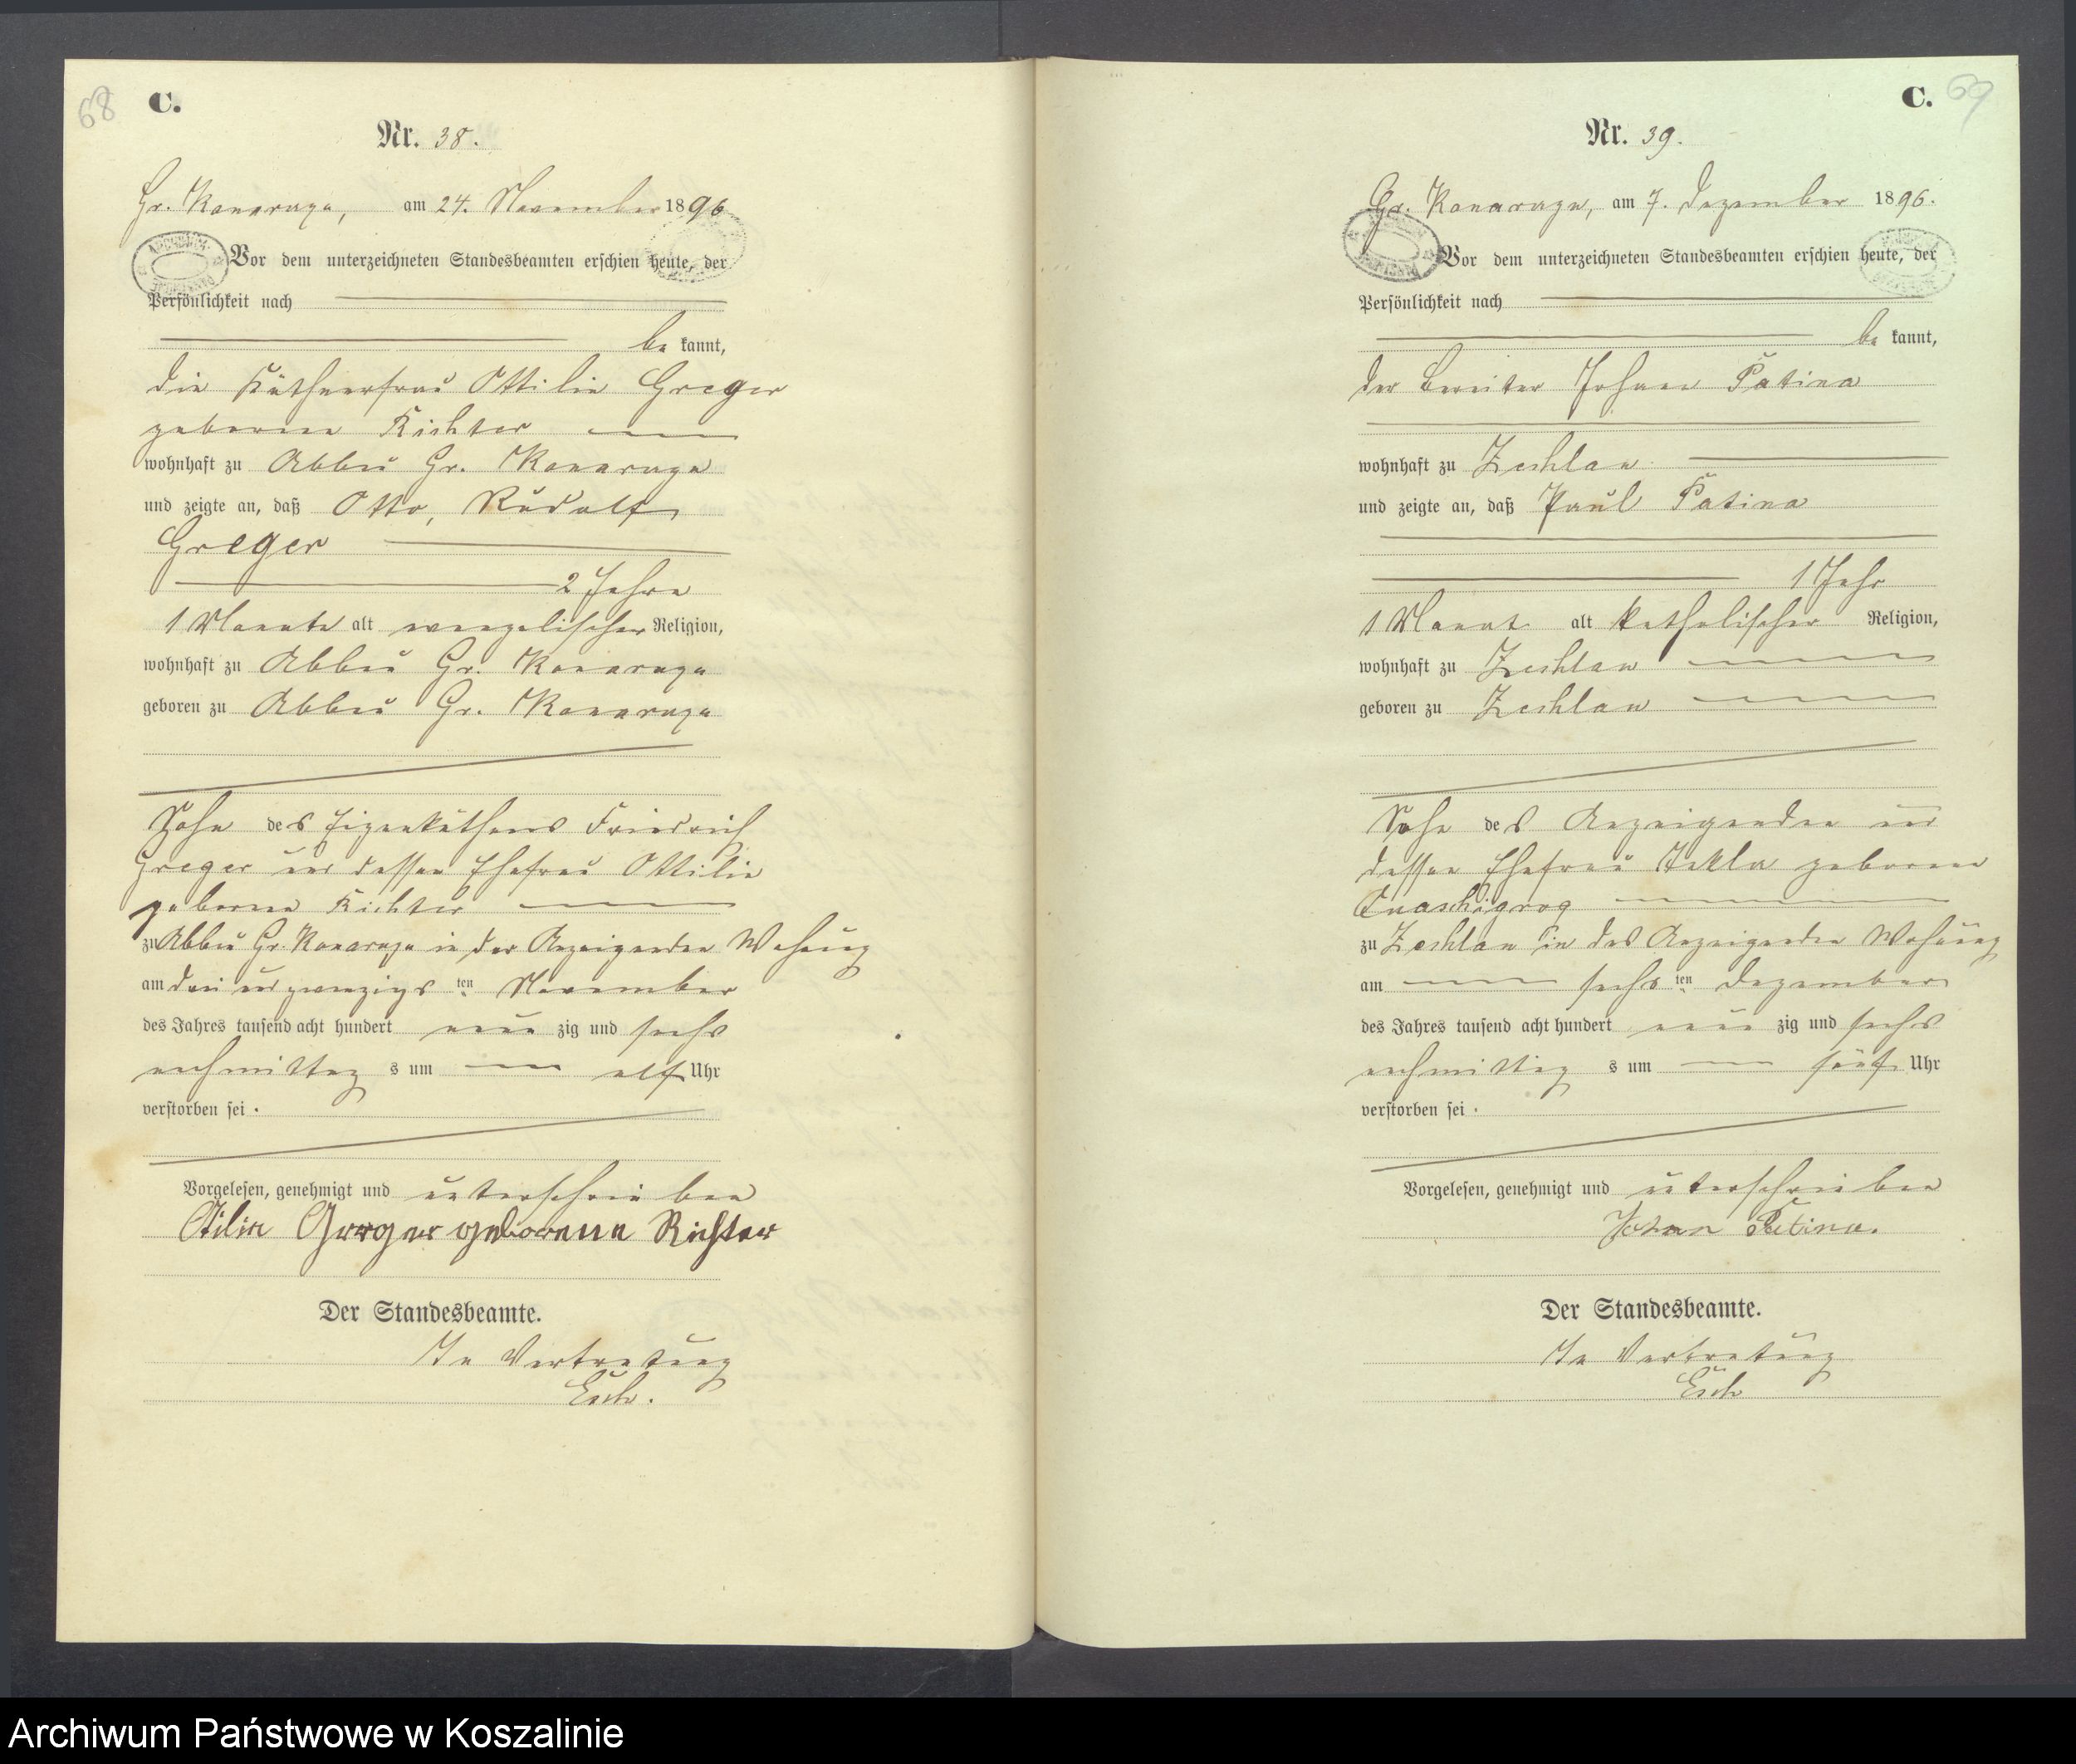 68
C.
Nr. 38.
Gr. Konarczyn, am 24. November 1896
Vor dem unterzeichneten Standesbeamten erschien heute, der
Persönlichkeit nach
be kannt,
die Käthnerfrau Ottilie Greger
geborene Richter
wohnhaft zu Abbau Gr. Konarczyn
und zeigte an, daß Otto, Rudolf
Greger
2 Jahre
1 Monate alt evangelischer Religion,
wohnhaft zu Abbau Gr.
geboren zu Abbau Gr.
Sohn des Eigenkäthners Friedrich
Greger und dessen Ehefrau Ottilie
geborene Richter
zu Abbau Gr. in der Anzeigenden Wohnung
am drei und zwanzigs ten November
des Jahres tausend acht hundert neun zig und sechs
nachmittag s um elf Uhr
verstorben sei.
Vorgelesen, genehmigt und unterschrieben
Otilie Greger geborene Richter
Der Standesbeamte.
In Vertretung
Esch.
C. 69
Nr. 39.
Gr. am 7. Dezember 1896.
Vor dem unterzeichneten Standesbeamten erschien heute, der
Persönlichkeit nach
be kannt,
der Johann Patina
wohnhaft zu Zechlau
und zeigte an, daß Paul Patina
1 Jahr
1 Monat alt katholischer Religion,
wohnhaft zu Zechlau
geboren zu Zechlau
Sohn des Anzeigenden und
dessen Ehefrau Tekla geborene
zu Zechlau in des Anzeigenden Wohnung
am sechs ten Dezember
des Jahres tausend acht hundert neun zig und sechs
nachmittag s um fünf Uhr
verstorben sei.
Vorgelesen, genehmigt und unterschrieben
Johan Patina.
Der Standesbeamte.
In Vertretung
Esch
Archiwum Państwowe w Koszalinie